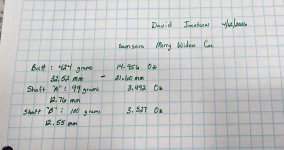 David Jacobson
Samsara Merry Widow Cue
Butt : 424 grams 14.956 Oz
32.52 mm - 21.60 mm
Shaft "A" : 99 grams 3.492 Oz
12.76 mm
Shaft "B" : 100 grams 3.527 Oz
12.55 mm